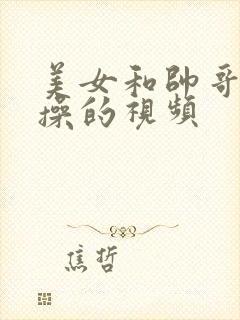 美女和帥哥
操的視頻
焦哲